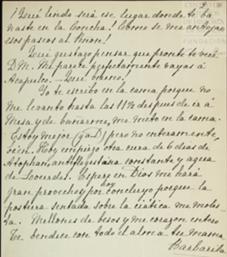 ¡Qué lindo será ese lugar donde te ba
naste en la Concha! ¡Cómo se me antojan
esos paseos al Pinar!
¡Qué gusto pensar que pronto te veré
D. M. Me parece perfectamente vayas á
Acapulco. ¡Qué bueno!
Yo te escribo en la cama porque no
me levanto hasta las 11½ después de ir á
Mesa y de bañarme, me meto en la cama.
Estoy mejor (g. a D.) pero no enteramente
bien. Hoy empiezo otra cura de 6 dias de
Atophan, antiflogistina constante y agua
de Lecourbe. Espero en Dios me hará
gran provecho y por hoy concluyo porque la
postura sentada sobre la ciática me moles
ta. Millones de besos y mi corazón entero
Te bendice con todo el alma tu mamá
Barbarita